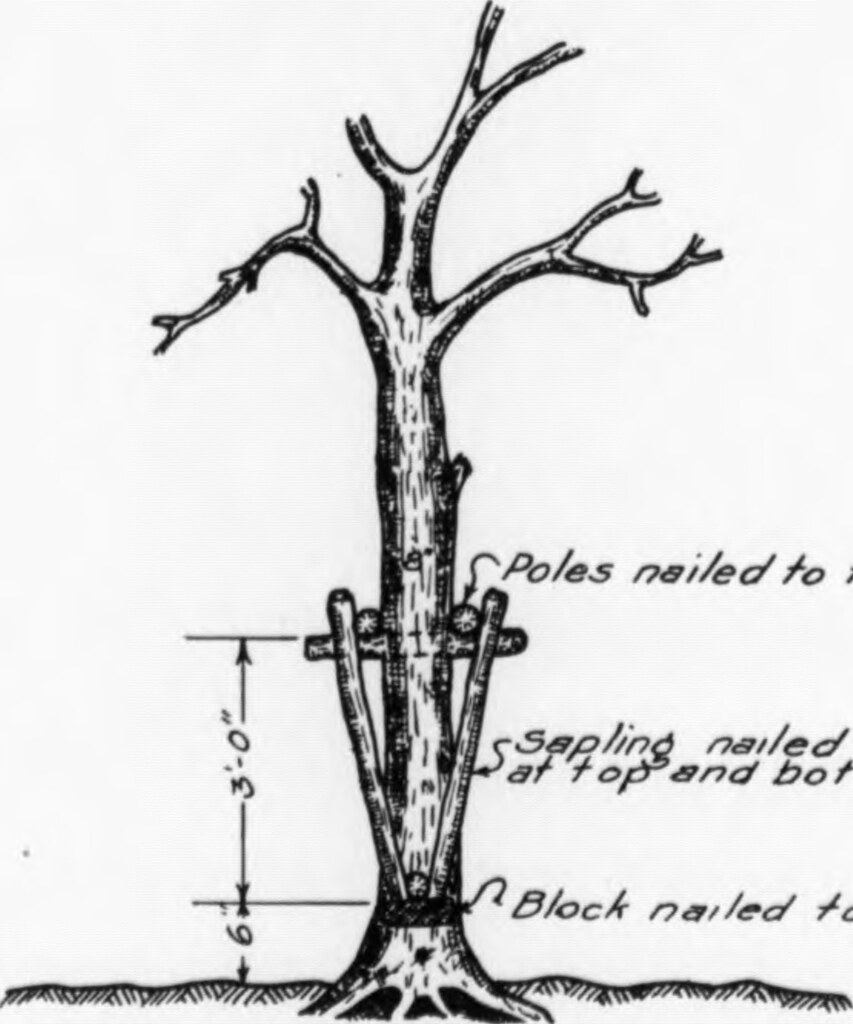 Poles nailed to
Sapling nailed
at top and bot
Block nailed to
3'-0"
6"